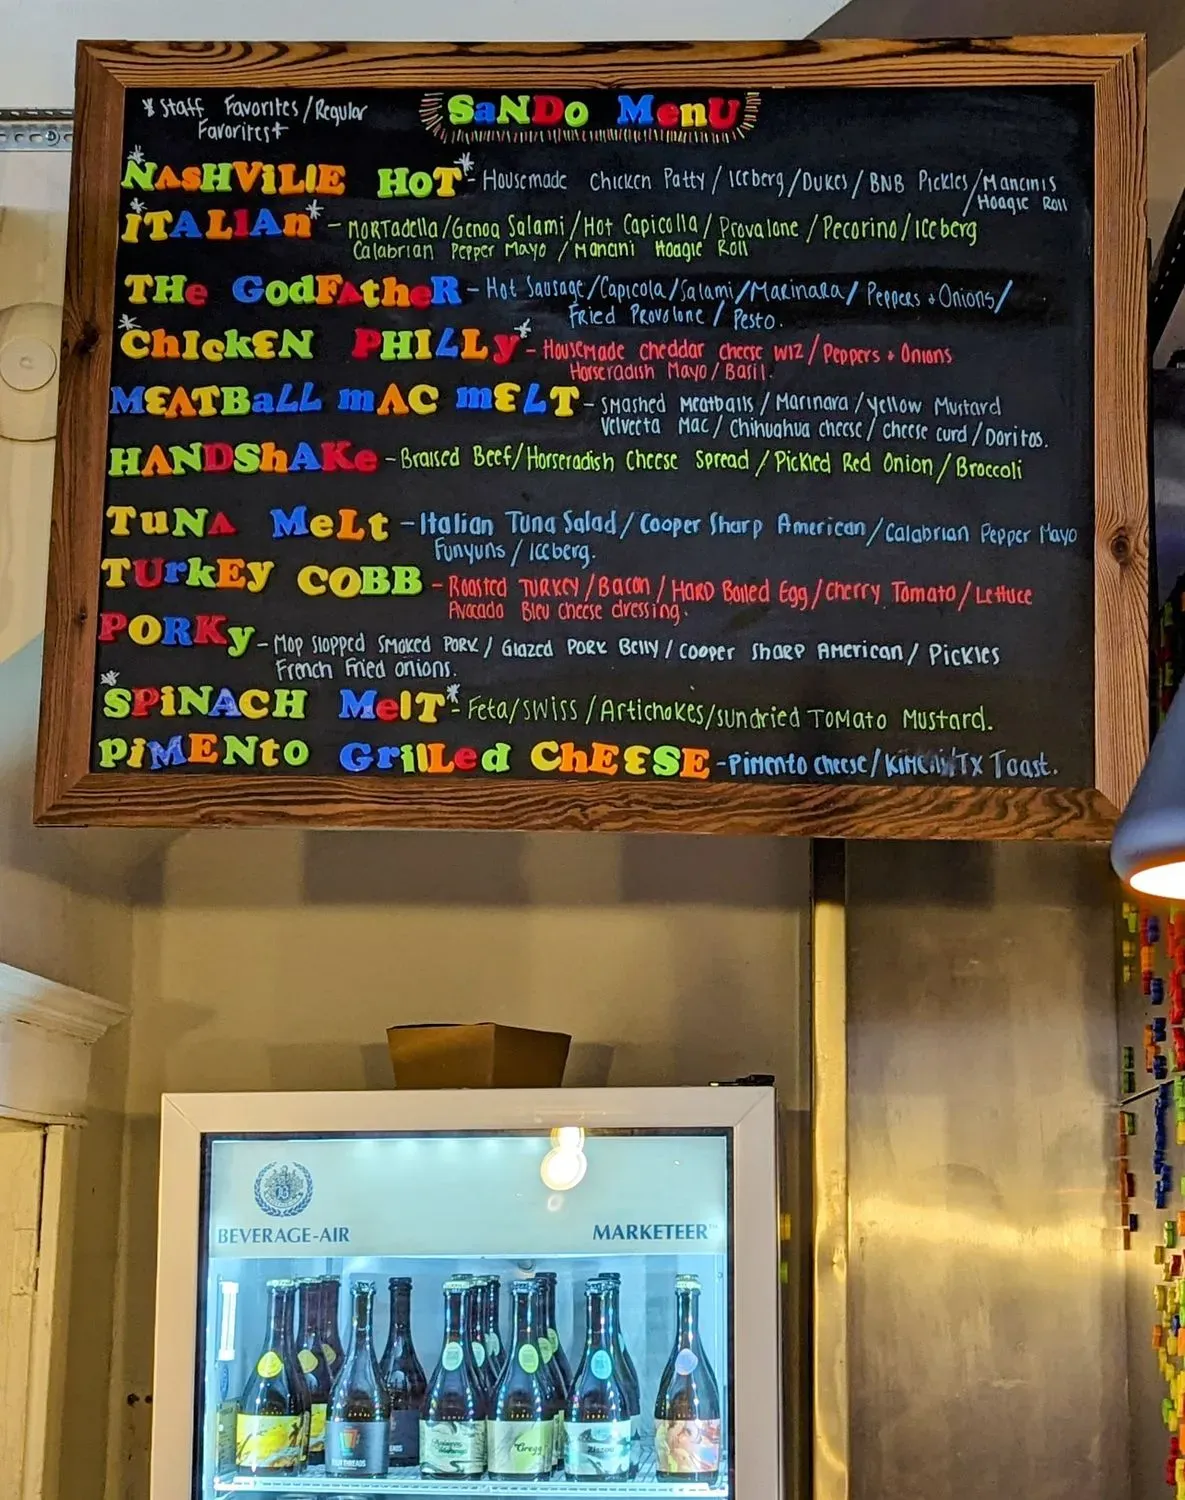 *Staff Favorites/Regular
Favorites+
SaNDo MenU
*NAsHViLlE HoT* - Housemade Chicken Patty / Iceberg/Dukes/BNB Pickles/Mancinis
/Hoagie Roll
*iTALIAn* - MORTadella/Genoa Salami/Hot Capicolla/Provalone/Pecorino/Iceberg
Calabrian Pepper Mayo/Mancini Hoagie Roll
THe GodFAtheR - Hot Sausage/Capicola/Salami/Marinara/Peppers + Onions/
Fried Provolone/Pesto.
*ChIckEN PHILLy* - Housemade cheddar cheese wiz/Peppers + Onions
Horseradish Mayo/Basil.
MEATBaLL mAC mELT - Smashed Meatballs/Marinara/yellow Mustard
Velveeta Mac/Chihuahua cheese/cheese curd/Doritos.
HANDShAKe - Braised Beef/Horseradish Cheese Spread/Pickled Red Onion/Broccoli
TuNA MeLt - Italian Tuna Salad/Cooper Sharp American/Calabrian Pepper Mayo
Funyuns/Iceberg.
TUrkEy COBB - Roasted TURKEY/Bacon/HARD Boiled Egg/Cherry Tomato/Lettuce
Avacado Bleu cheese dressing.
PORKy - Mop slopped Smoked PORK/Glazed PORK Belly/Cooper SHARP AMERICAN/Pickles
French Fried onions.
*SPiNACH MelT* - Feta/SWISS/Artichokes/sundried TOMato Mustard.
PiMENto GrilLed ChEESE - Pimento cheese/ TX Toast.
BEVERAGE-AIR
MARKETEER™
Gregg